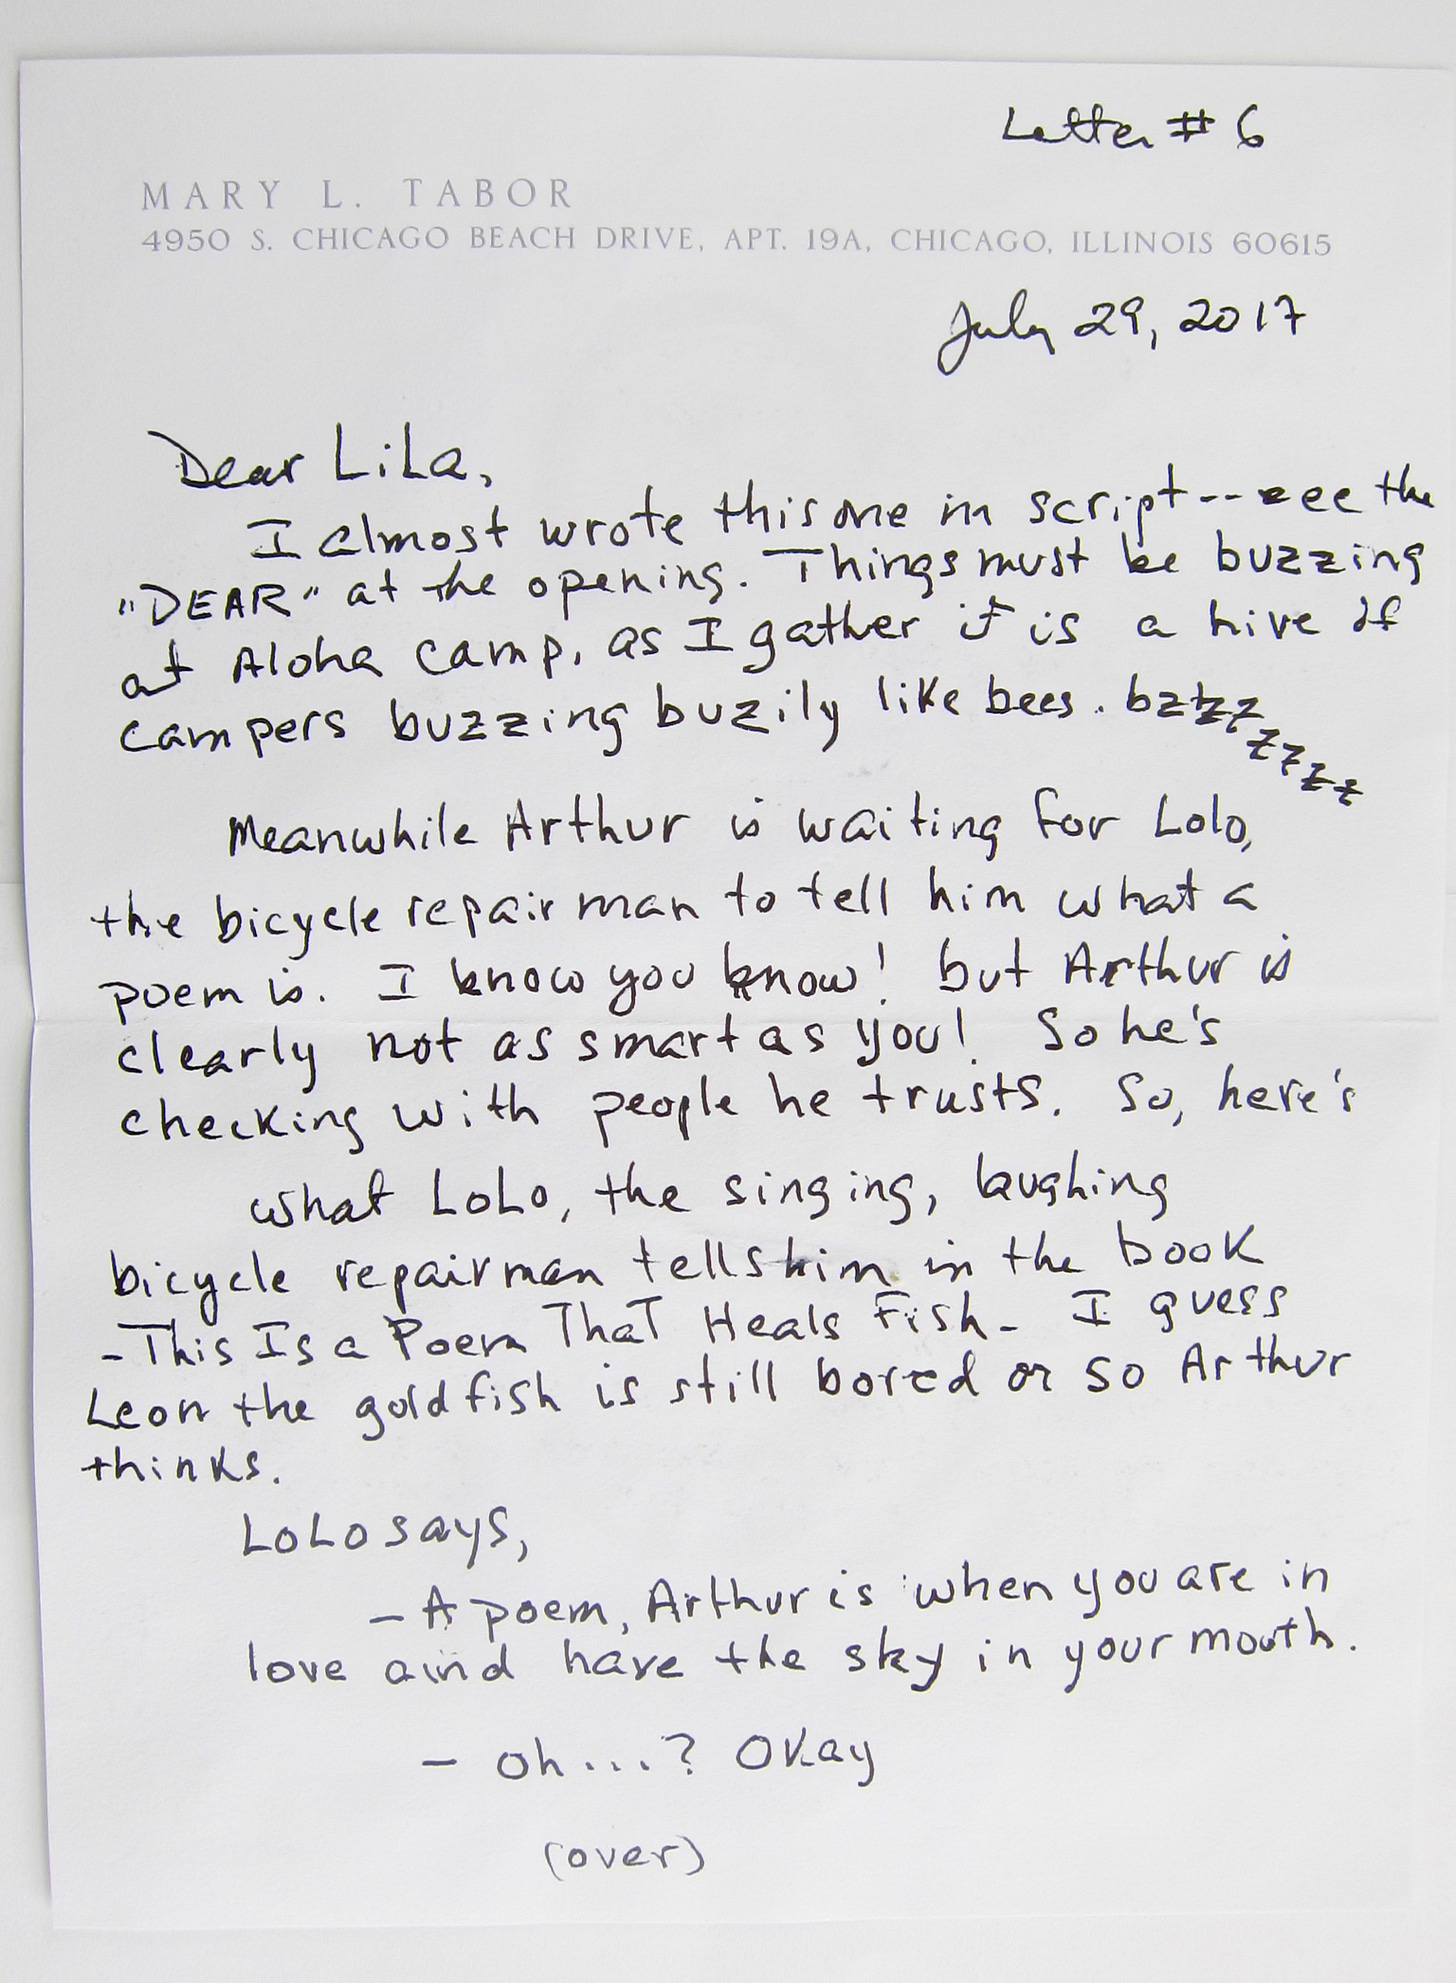 Letter # 6
MARY L. TABOR
4950 S. CHICAGO BEACH DRIVE, APT. 19A, CHICAGO, ILLINOIS 60615
July 29, 2017
Dear LiLa,
I almost wrote this one in script -- see the
"DEAR" at the opening. Things must be buzzing
at Aloha camp, as I gather it is a hive of
campers buzzing buzily like bees. bzzzzzzzz
Meanwhile Arthur is waiting for Lolo,
the bicycle repair man to tell him what a
poem is. I know you know! but Arthur is
clearly not as smart as you! So he's
checking with people he trusts. So, here's
what LoLo, the singing, laughing
bicycle repairman tells him in the book
- This Is a Poem That Heals Fish - I guess
Leon the goldfish is still bored or so Arthur
thinks.
LoLo says,
- A poem, Arthur is when you are in
love and have the sky in your mouth.
- oh...? Okay
(over)